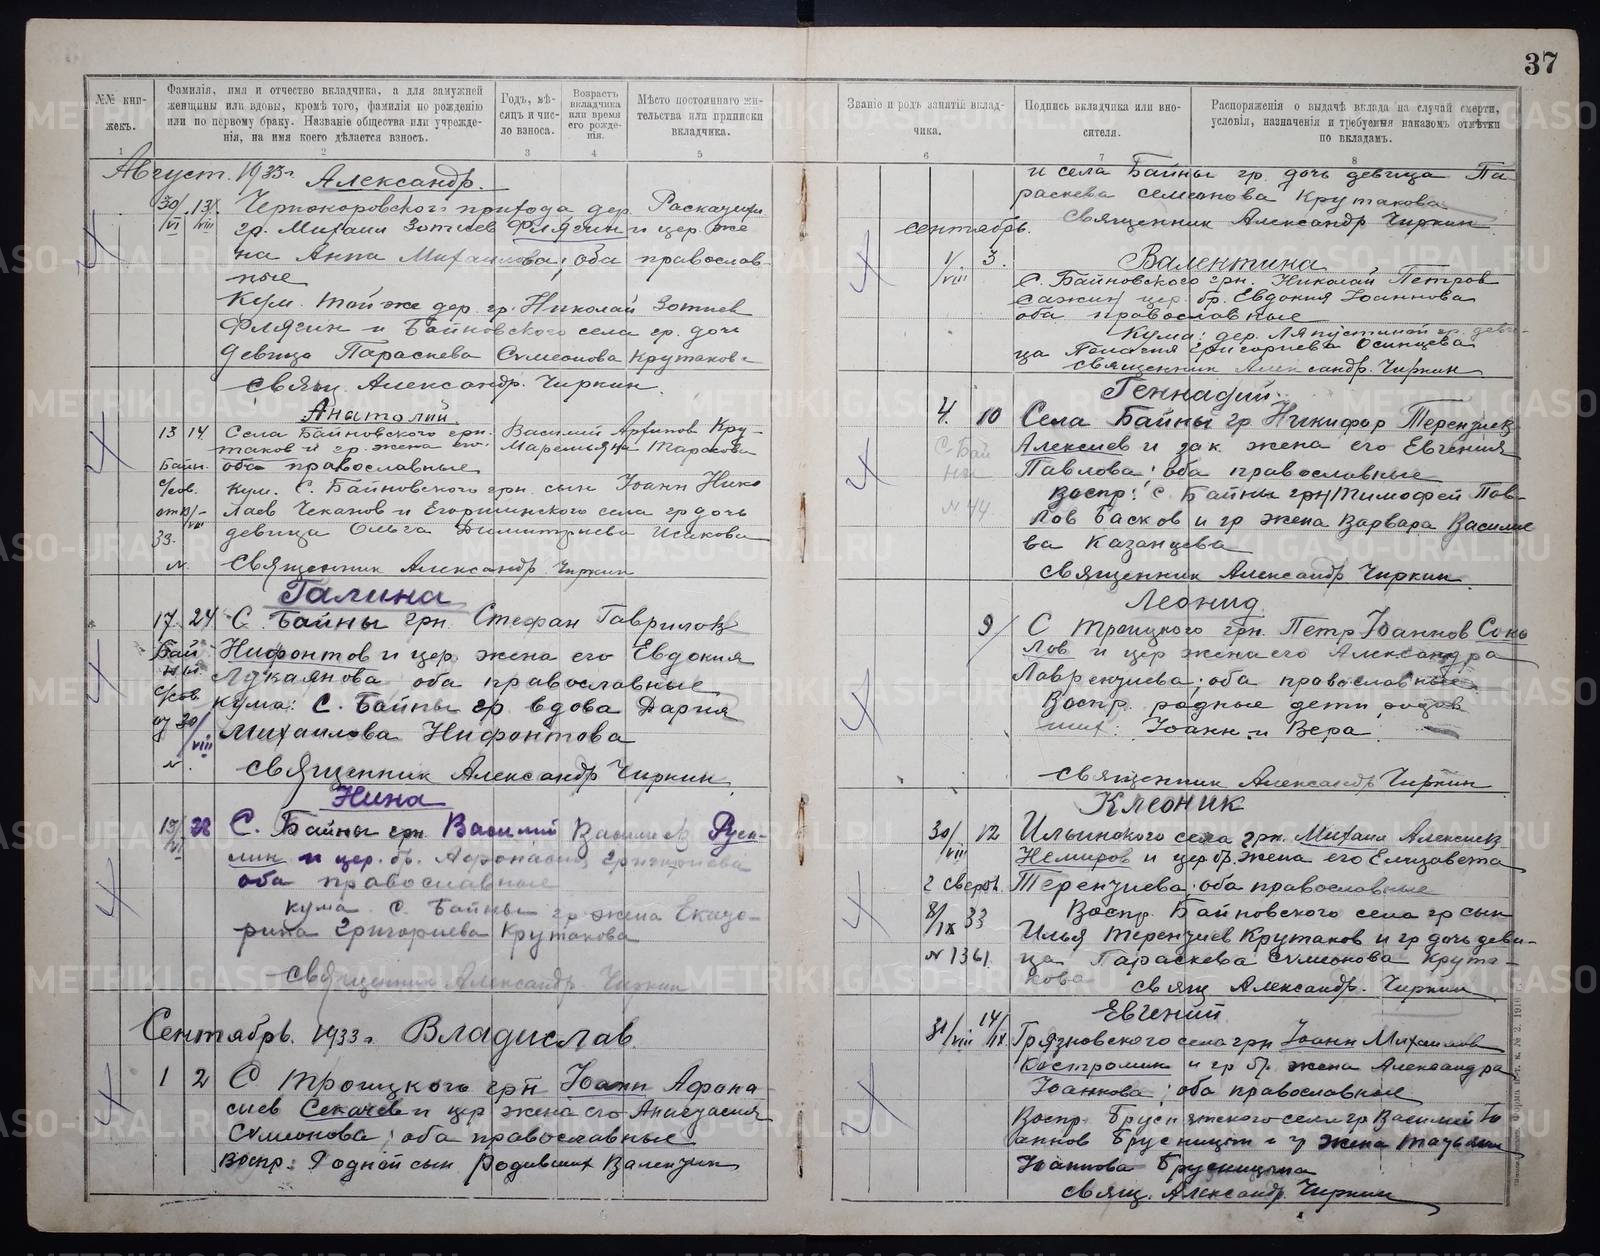 37
№№ кни-
жекъ.
Фамилія, имя и отчество вкладчика, а для замужней
женщины или вдовы, кромѣ того, фамилія по рожденію
или по первому браку. Названіе общества или учрежде-
нія, на имя коего дѣлается взносъ.
Годъ, мѣ-
сяцъ и чис-
ло взноса.
Возрастъ
вкладчика
или время
его рожде-
нія.
Мѣсто постояннаго жи-
тельства или приписки
вкладчика.
1 2 3 4 5
Август. 1933 г. Александр.
30/VI 13/VIII Чернокоровского прихода дер.
гр. Михаил Зотиев Флягин и цер. же
на Анна Михаилова; оба православ-
ные
Кум. той же дер. гр. Николай Зотиев
Флягин и Байновского села гр. дочь
девица Параскева Симеонова Крутакова
свящ. Александр. Чиркин.
Анатолий
13 14 Села Байновского грн. Василий Архипов Кру-
таков и гр. жена его Маремияна Тарасова
Байн. оба православные
с/сов. Кум. С. Байновского грн. сын Иоанн Нико
лаев Чеканов и Егоршинского села гр дочь
33. девица Ольга Димитриева Исакова
N. Священник Александр Чиркин
Галина
17. 24 С. Байны грн. Стефан Гаврилов
Бай Нифонтов и цер. жена его Евдокия
ны Лукаянова оба православные
с/сов. кума: С. Байны гр. вдова Дария
от 30/VIII Михаилова Нифонтова
N. священник Александр Чиркин
Нина
28 С. Байны грн. Василий Васильев Руси-
лик и цер. бр. Афонасия Григориева
оба православные
кума. С. Байны гр жена Екате-
рина Григориева Крутакова
Священник Александр. Чиркин
Сентябрь. 1933 г. Владислав.
1 2 С Троицкого грн Иоанн Афона
сиев Секачев и цер жена его Анастасия
Симеонова; оба православные
Воспр: Родной сын родивших Валентин
Званіе и родъ занятій вклад-
чика.
Подпись вкладчика или вно-
сителя.
Распоряженія о выдачѣ вклада на случай смерти,
условія, назначенія и требуемыя наказомъ отмѣтки
по вкладамъ.
6 7 8
и села Байны гр. дочь девица Па
раскева семеонова Крутакова
священник Александр Чиркин
сентябрь.
1/VIII 3. Валентина
С. Байновского грн. Николай Петров
Сажин цер. бр. Евдокия Иоаннова
оба православные
Кума: дер. Ляпустиной гр. деви-
ца Пелагия Григориева Осинцева
священник Александр. Чиркин
Геннадий.
4. 10 Села Байны гр. Никифор Терентиев
С. Бай Алексиев и зак. жена его Евгения
ны Павлова; оба православные
N 44 Воспр: С. Байны грн Тимофей Пав-
лов Басков и гр жена Варвара Василие
ва Казанцева
священник Александр Чиркин.
Леонид
9/ С Троицкого грн. Петр Иоаннов Соко
лов и цер жена его Александра
Лаврентиева; оба православные
Воспр. родные дети родив
ших: Иоанн и Вера
священник Александр Чиркин
Клеоник
30/VIII 12 Ильинского села грн. Михаил Алексиев
Немиров и цер бр. жена его Елизавета
Терентиева; оба православные
8/IX 33 Воспр. Байновского села гр сын
Илья Терентиев Крутаков и гр дочь деви-
N 1361 ца Параскева Симеонова Крута-
кова свящ Александр. Чиркин
Евгений
31/VIII 14/IX Грязновского села грн Иоанн Михаилов
Костромин и гр бр. жена Александра
Иоаннова; оба православные
Воспр. Бруснятского села гр Василий Ио
аннов Брусницын и гр жена Татьяна
Иоаннова Брусницына
свящ. Александр Чиркин
METRIKI.GASO-URAL.RU